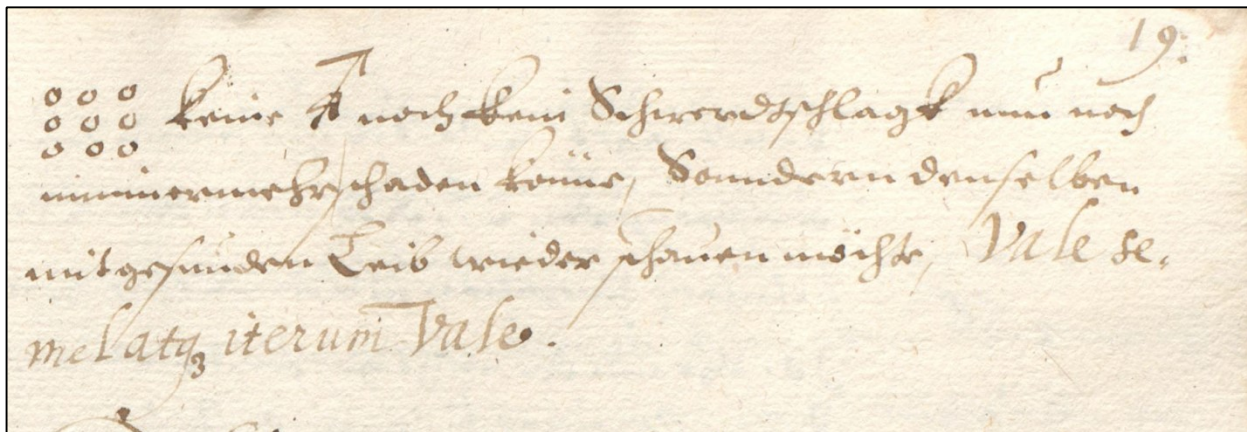 19.
o o o keine noch kein Schwerdtschlagk nun noch
o o o
o o o
nimmermehr schaden könne, Sonndern denselben
mit gesunden Leib wieder schauen möchte, Vale se-
mel atq₃ iterum Vale.